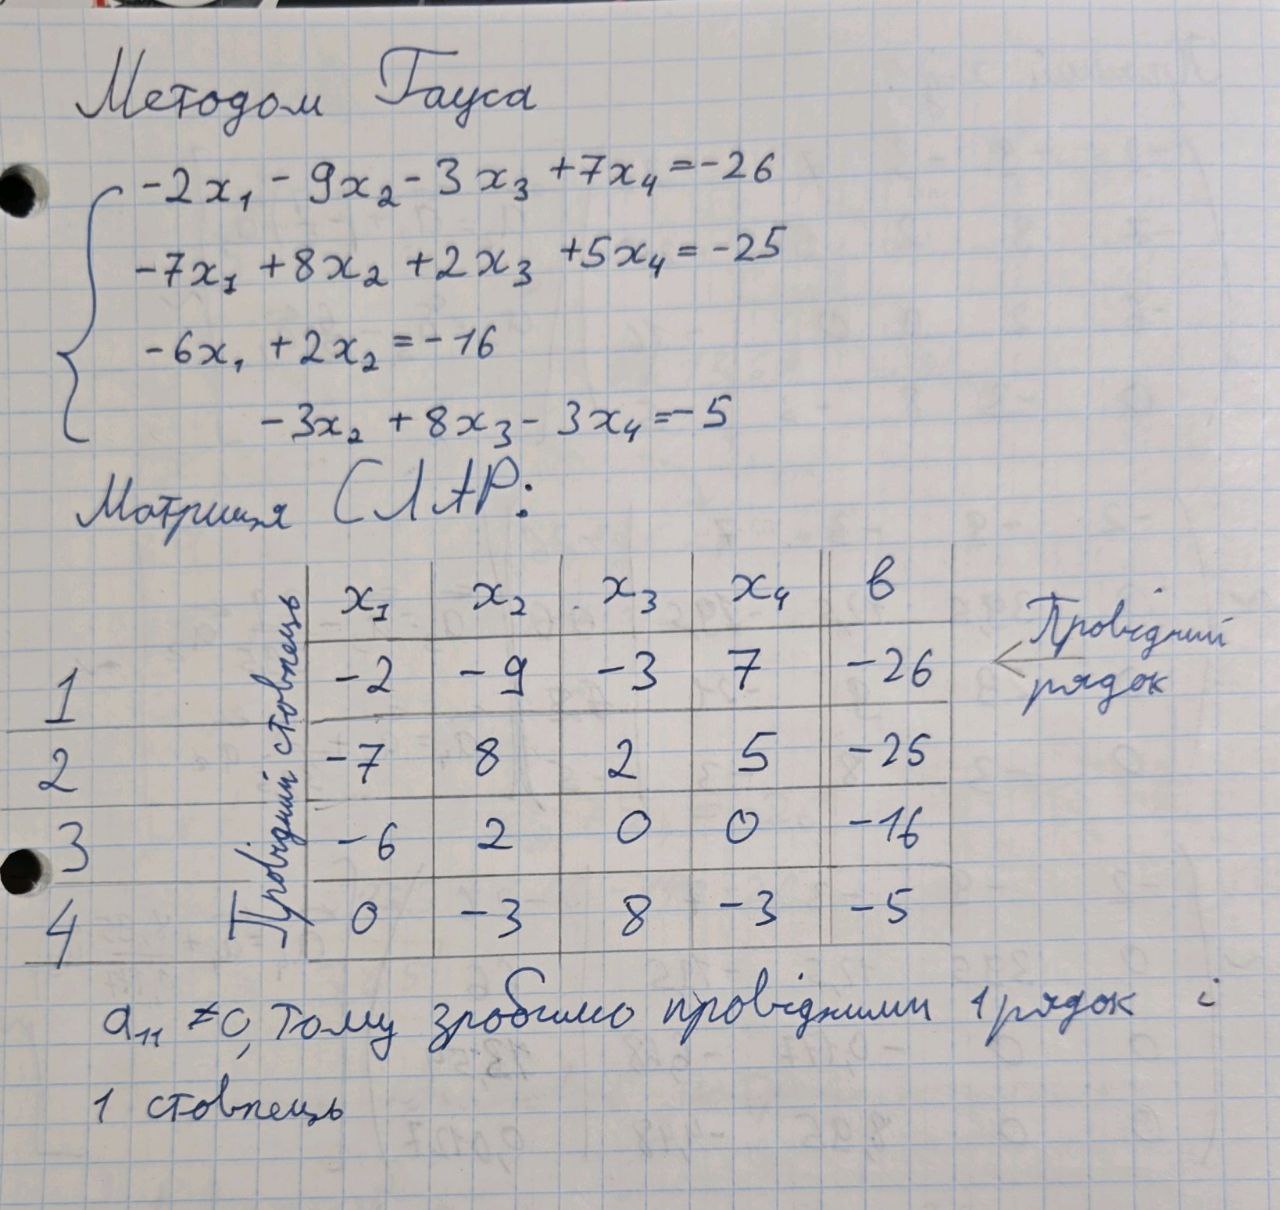 Методом Гауса
-2x₁ - 9x₂ - 3x₃ + 7x₄ = -26
-7x₁ + 8x₂ + 2x₃ + 5x₄ = -25
-6x₁ + 2x₂ = -16
-3x₂ + 8x₃ - 3x₄ = -5
Матриця СЛАР:
Провідний стовпець
x₁ x₂ x₃ x₄ b
1 -2 -9 -3 7 -26
Провідний
рядок
2 -7 8 2 5 -25
3 -6 2 0 0 -16
4 0 -3 8 -3 -5
a₁₁ ≠ 0, тому зробимо провідними 1 рядок і
1 стовпець